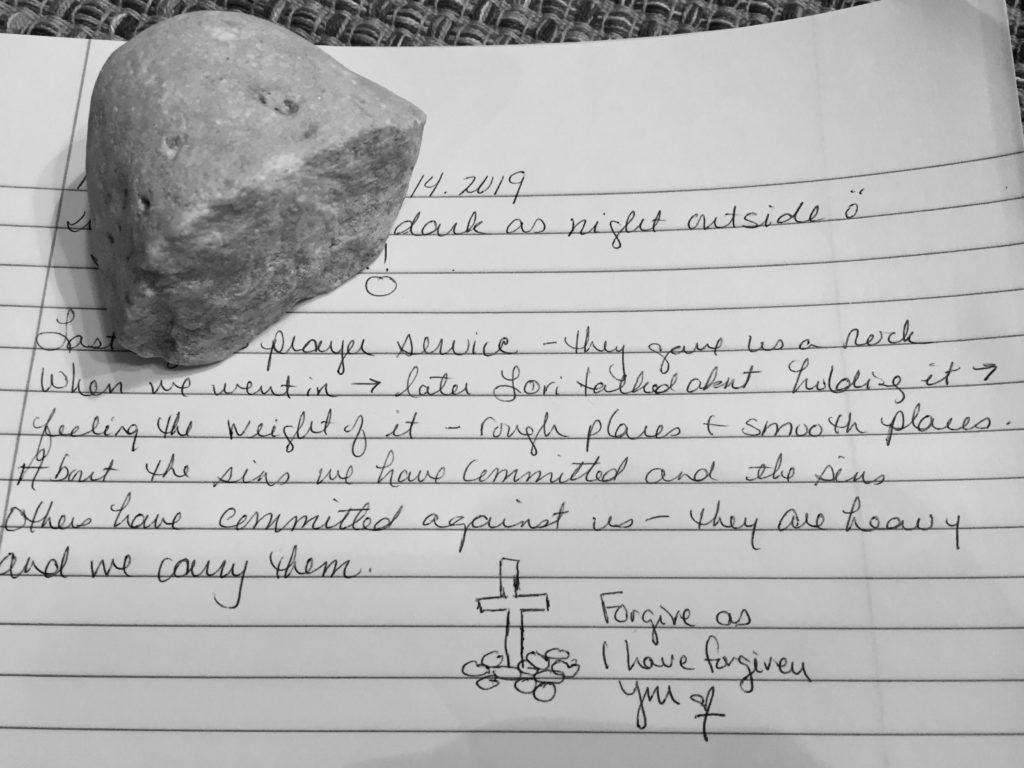 14.2019
dark as night outside
!
Last prayer service - they gave us a rock
When we went in → later Lori talked about holding it →
feeling the weight of it - rough places + smooth places.
About the sins we have committed and the sins
others have committed against us - they are heavy
and we carry them.
Forgive as
I have forgiven
you